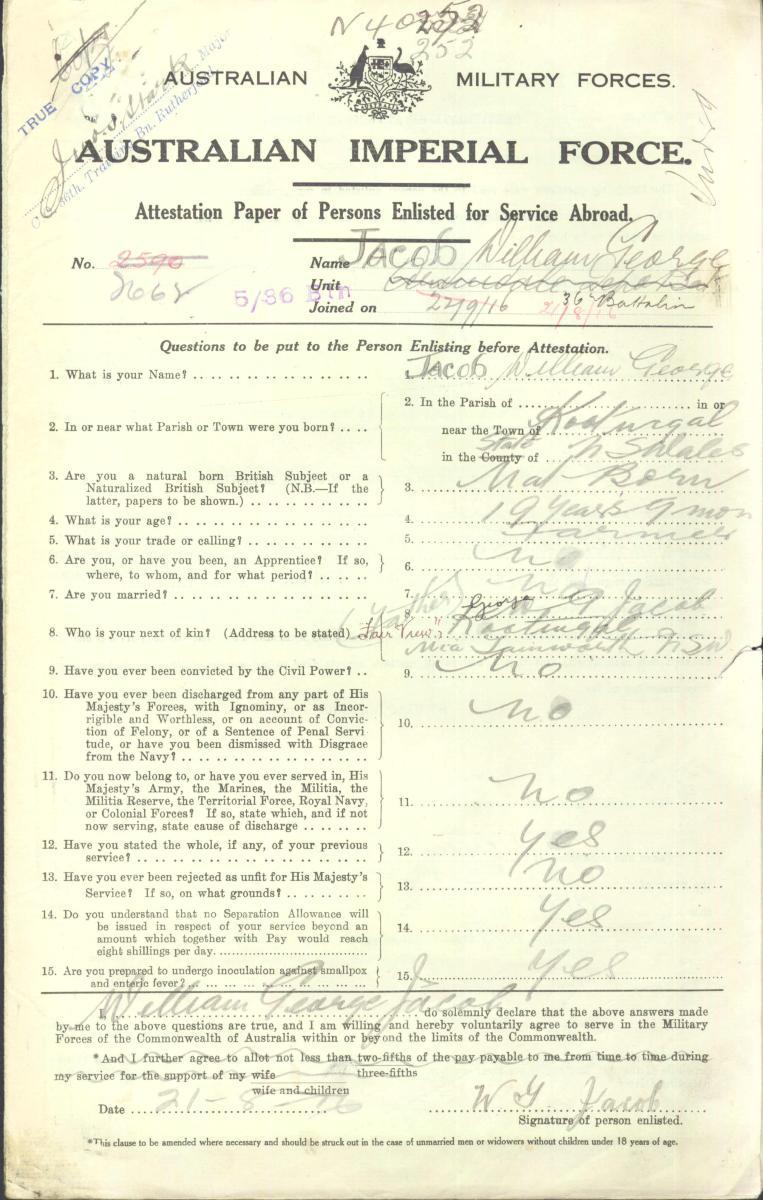 N40252
252
TRUE COPY
AUSTRALIAN MILITARY FORCES.
AUSTRALIA
Major
36th. Training Bn. Rutherford
AUSTRALIAN IMPERIAL FORCE.
Attestation Paper of Persons Enlisted for Service Abroad.
No. 2590 Name Jacob William George
2662 Unit
5/36 Btn 36 Battalion
Joined on 22/9/16 21/8/16
Questions to be put to the Person Enlisting before Attestation.
1. What is your Name? .. Jacob William George
2. In or near what Parish or Town were you born? .. 2. In the Parish of .......... in or
near the Town of Kootingal
in the County of State N S Wales
3. Are you a natural born British Subject or a
Naturalized British Subject? (N.B.—If the
latter, papers to be shown.) .. 3. Nat Born
4. What is your age? .. 4. 19 years 9 mon
5. What is your trade or calling? .. 5. Farmer
6. Are you, or have you been, an Apprentice? If so,
where, to whom, and for what period? .. 6. No
7. Are you married? .. 7. No
8. Who is your next of kin? (Address to be stated) 8. (Father) George W G Jacob
"Fair View" Kootingal
Via Tamworth NSW
9. Have you ever been convicted by the Civil Power? .. 9. No
10. Have you ever been discharged from any part of His
Majesty's Forces, with Ignominy, or as Incor-
rigible and Worthless, or on account of Convic-
tion of Felony, or of a Sentence of Penal Servi
tude, or have you been dismissed with Disgrace
from the Navy? .. 10. No
11. Do you now belong to, or have you ever served in, His
Majesty's Army, the Marines, the Militia, the
Militia Reserve, the Territorial Force, Royal Navy,
or Colonial Forces? If so, state which, and if not
now serving, state cause of discharge .. 11. No
12. Have you stated the whole, if any, of your previous
service? .. 12. Yes
13. Have you ever been rejected as unfit for His Majesty's
Service? If so, on what grounds? .. 13. No
14. Do you understand that no Separation Allowance will
be issued in respect of your service beyond an
amount which together with Pay would reach
eight shillings per day .. 14. Yes
15. Are you prepared to undergo inoculation against smallpox
and enteric fever? .. 15. Yes
I, William George Jacob do solemnly declare that the above answers made
by me to the above questions are true, and I am willing and hereby voluntarily agree to serve in the Military
Forces of the Commonwealth of Australia within or beyond the limits of the Commonwealth.
*And I further agree to allot not less than two-fifths of the pay payable to me from time to time during
three-fifths
my service for the support of my wife
wife and children
Date 21-8-16 W G Jacob
Signature of person enlisted.
*This clause to be amended where necessary and should be struck out in the case of unmarried men or widowers without children under 18 years of age.